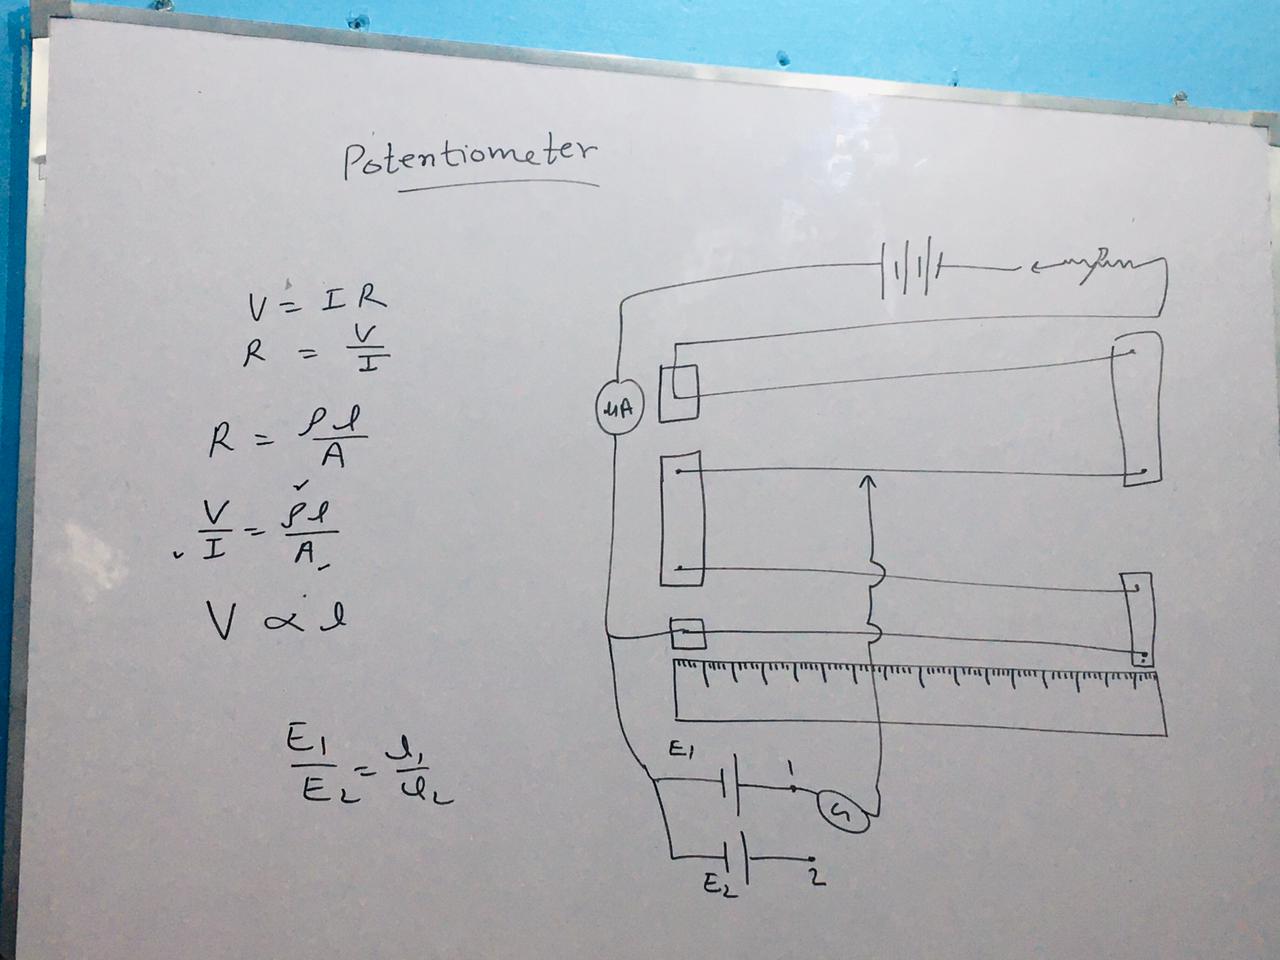 Potentiometer
V = I R
R = V/I
R = ρl/A
V/I = ρl/A
V ∝ l
E1/E2 = l1/l2
μA
E1
1
G
E2
2